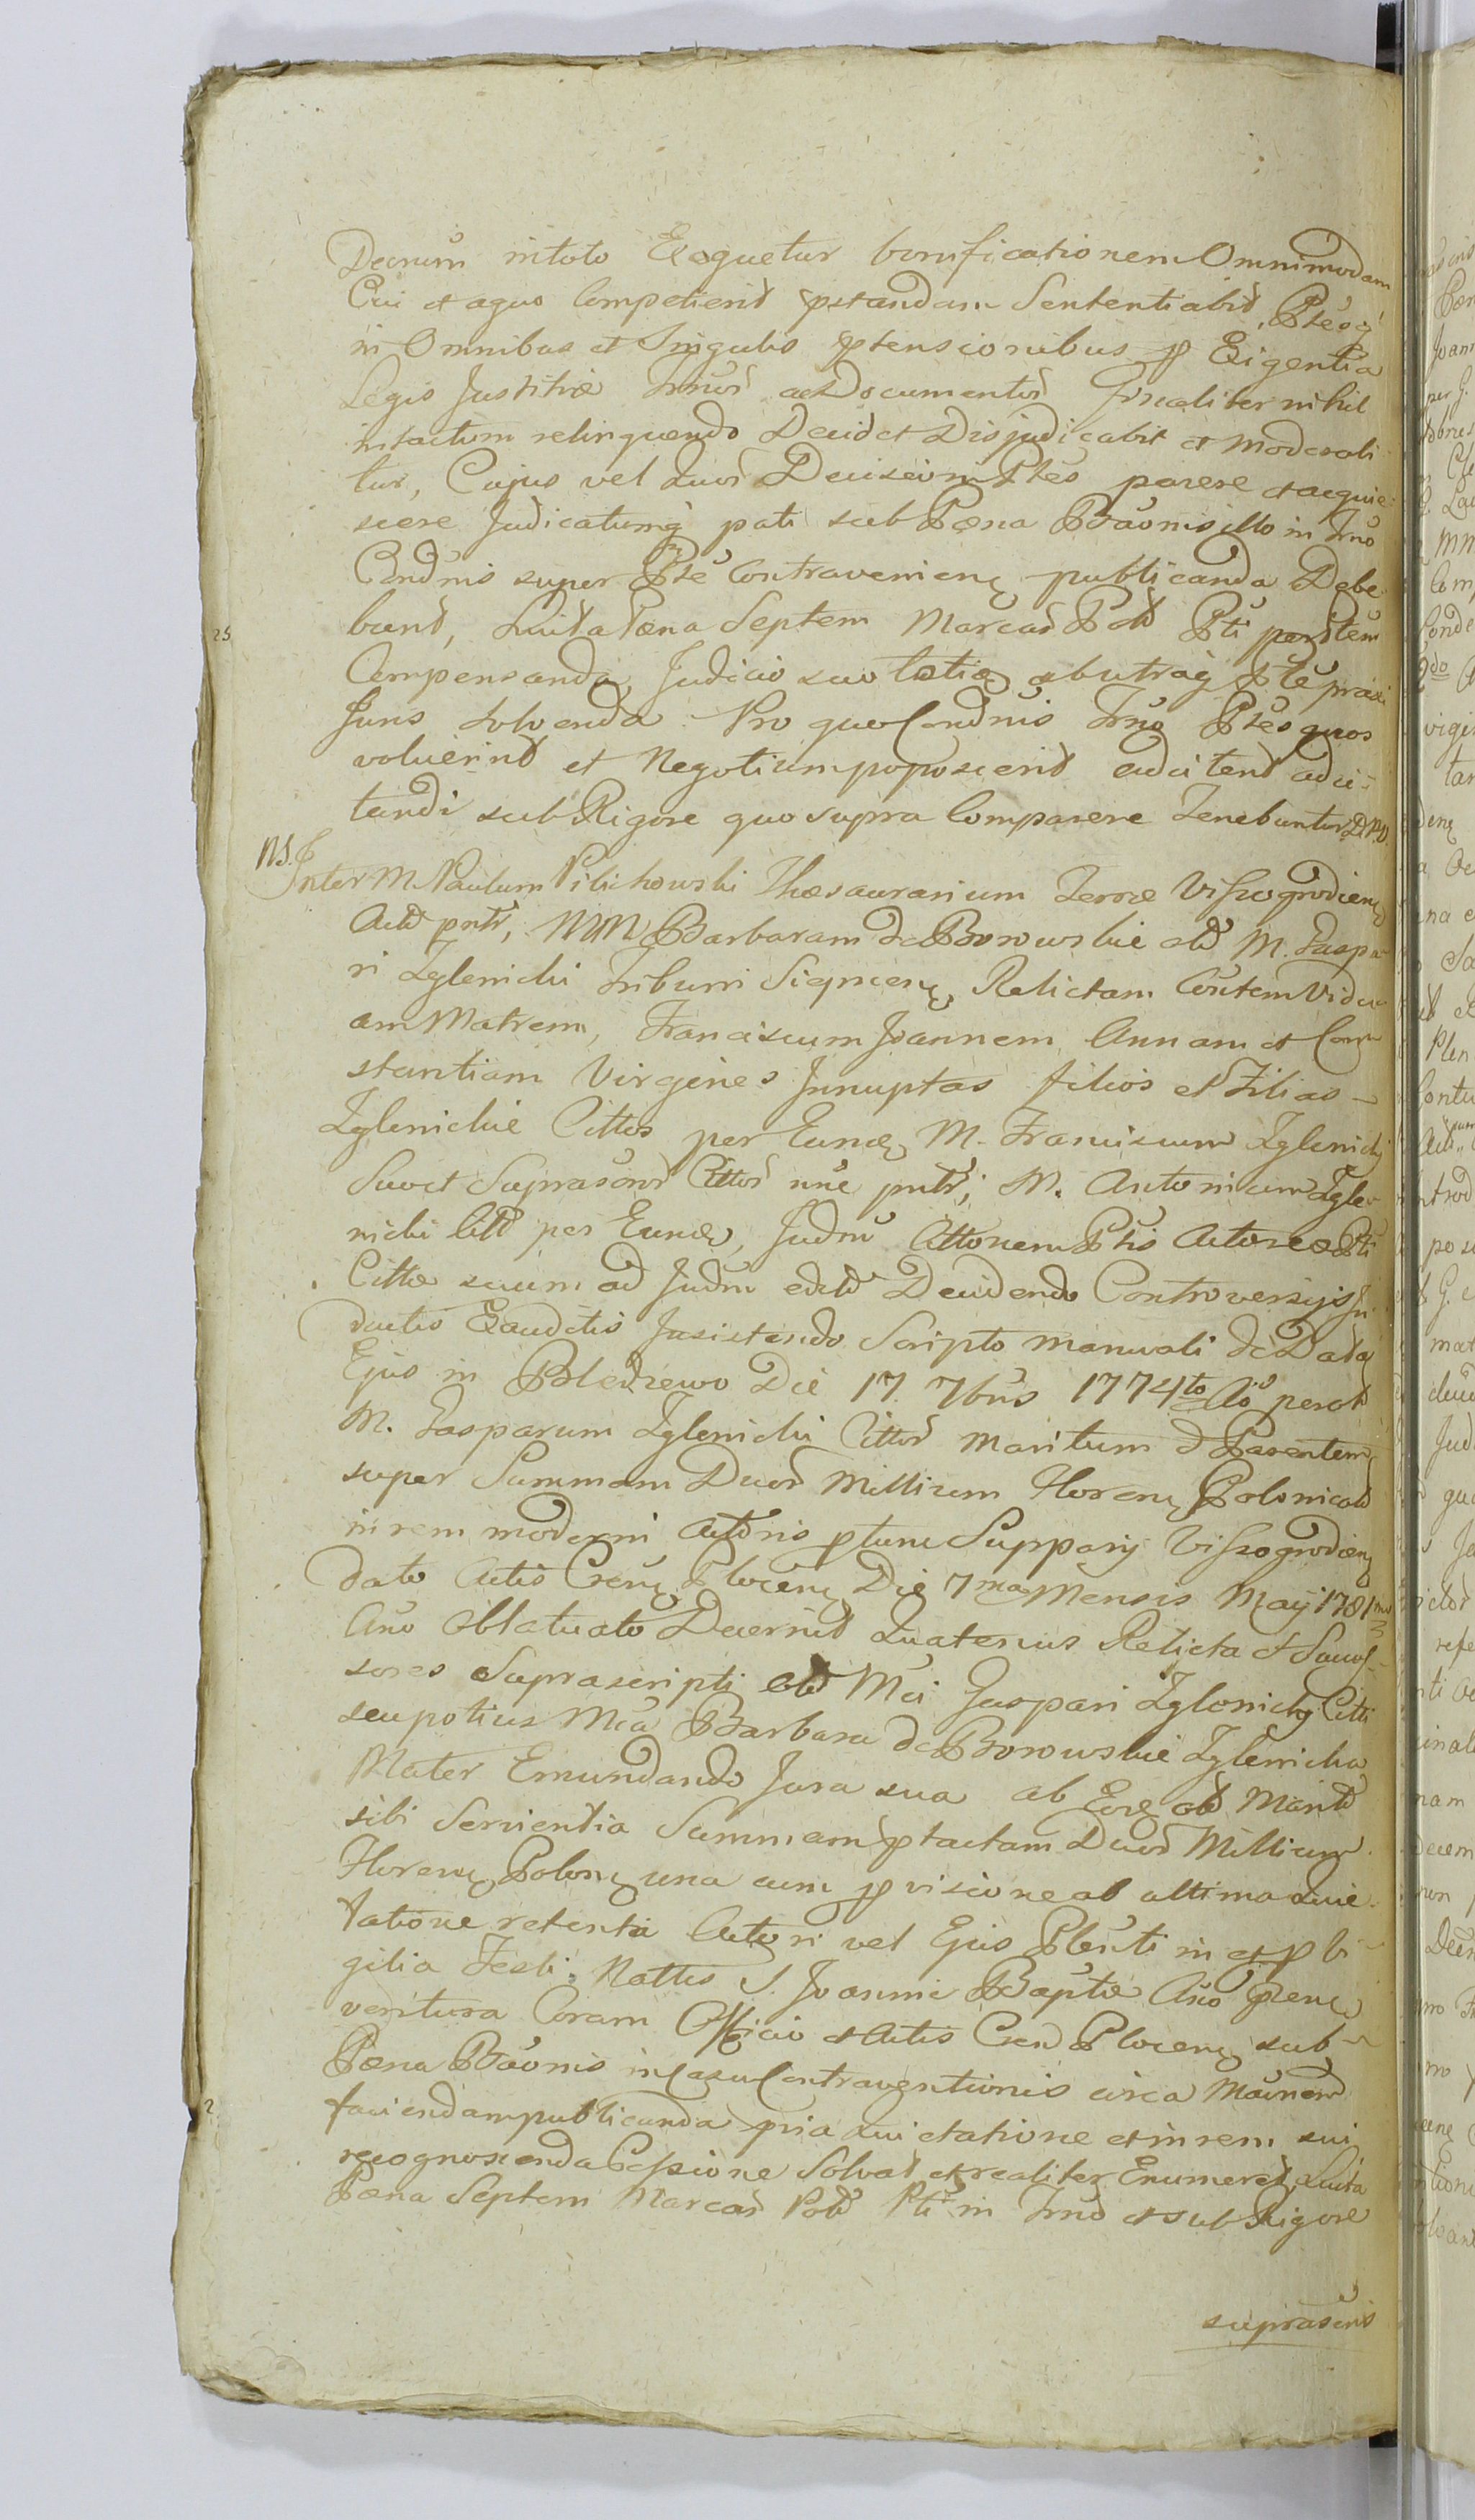 Decrum in toto Exequetur bonificationem Omnimodam
Cui et a quo Competierit pstandam Sententiabit, Ptesq
in Omnibus et Singulis ptensionibus p Exigentia
Legis Justitiæ Trnor ac Documentor finaliter nihil
intactum relinquendo Decidet Disjudicabit et moderabi
tur, Cujus vel Quor Decisioni Ptes parere et acquie
scere Judicatumq pati sub Pæna Bãonis illo in Trno
Condnis super Pte Contravenienę publicanda Debe
bunt, Luita Pæna Septem Marcar Pold Pti per Ptem
Compensanda, Judicio suo latią ab utraq Pte præsi
Juris solvenda. Pro quo Condnis Trno Ptes quos
voluerint et Negotium poposcerit adcitent adci
tandi sub Rigore quo supra Comparere Tenebuntur D.P.V.
NS. Inter M Paulum Pilichowski Thæsaurarium Terræ Viszogrodienę
Actd pntr, MM Barbaram de Borowskie old M. Gaspa
ri Zglenicki Tribuni Siepncenę Relictam Coutem Vidu
am Matrem, Franciscum Joannem, Annam et Con
stantiam Virgines Innuptas filios et Filias
Zglenickie Cittos per Eunđ M. Franciscum Zglenicki
Suo et Suprascror Cittor nne pntr; M. Antonium Zgle
nicki Citt per Eunđ, Judm Attonem Ptis Actoreæ Pti
Cittæ suum ad Judm edit Decidendo Controversijs In
ductis Exauditis Insistendo Scripto manuali de Data
Ejus in Bledzewo Die 17 7bris 1774to Ao per old
M. Gasparum Zglenicki Cittor maritum et Parentem
super Summam Duor Millium Florenę Polonicald
in rem moderni Actoris ptunc Supparij Viszogrodienę
dato Actis Crenę Plocenę Die 7ma Mensis Maij 1781mo
Ano Oblatuato Decernit Quatenus Relicta et Succes
sores Suprascripti old Mci Gaspari Zglenicki Citti
seu potius Mca Barbara de Borowskie Zglenicka
Mater Emundando Jura sua ab Eodę old Marito
sibi Servientia Summam ptactam Duor Millium
Florenę Polonę una cum pvisione ab ultima Quie
tatione retenta Actori vel Ejus Plenti in et p Vi
gilia Festi Nattis S. Joannis Baptæ Ano præne
ventura Coram Officio et Actis Cren Plocenę sub
Pæna Bãonis in Casu Contraventionis circa Mãnem
faciendam publicanda pria Quietatione et in rem sui
recognoscenda Cessione Solvat et realiter Enumeret, Luita
Pæna Septem Marcar Pold Pti in Trno et sub Rigore
suprascris